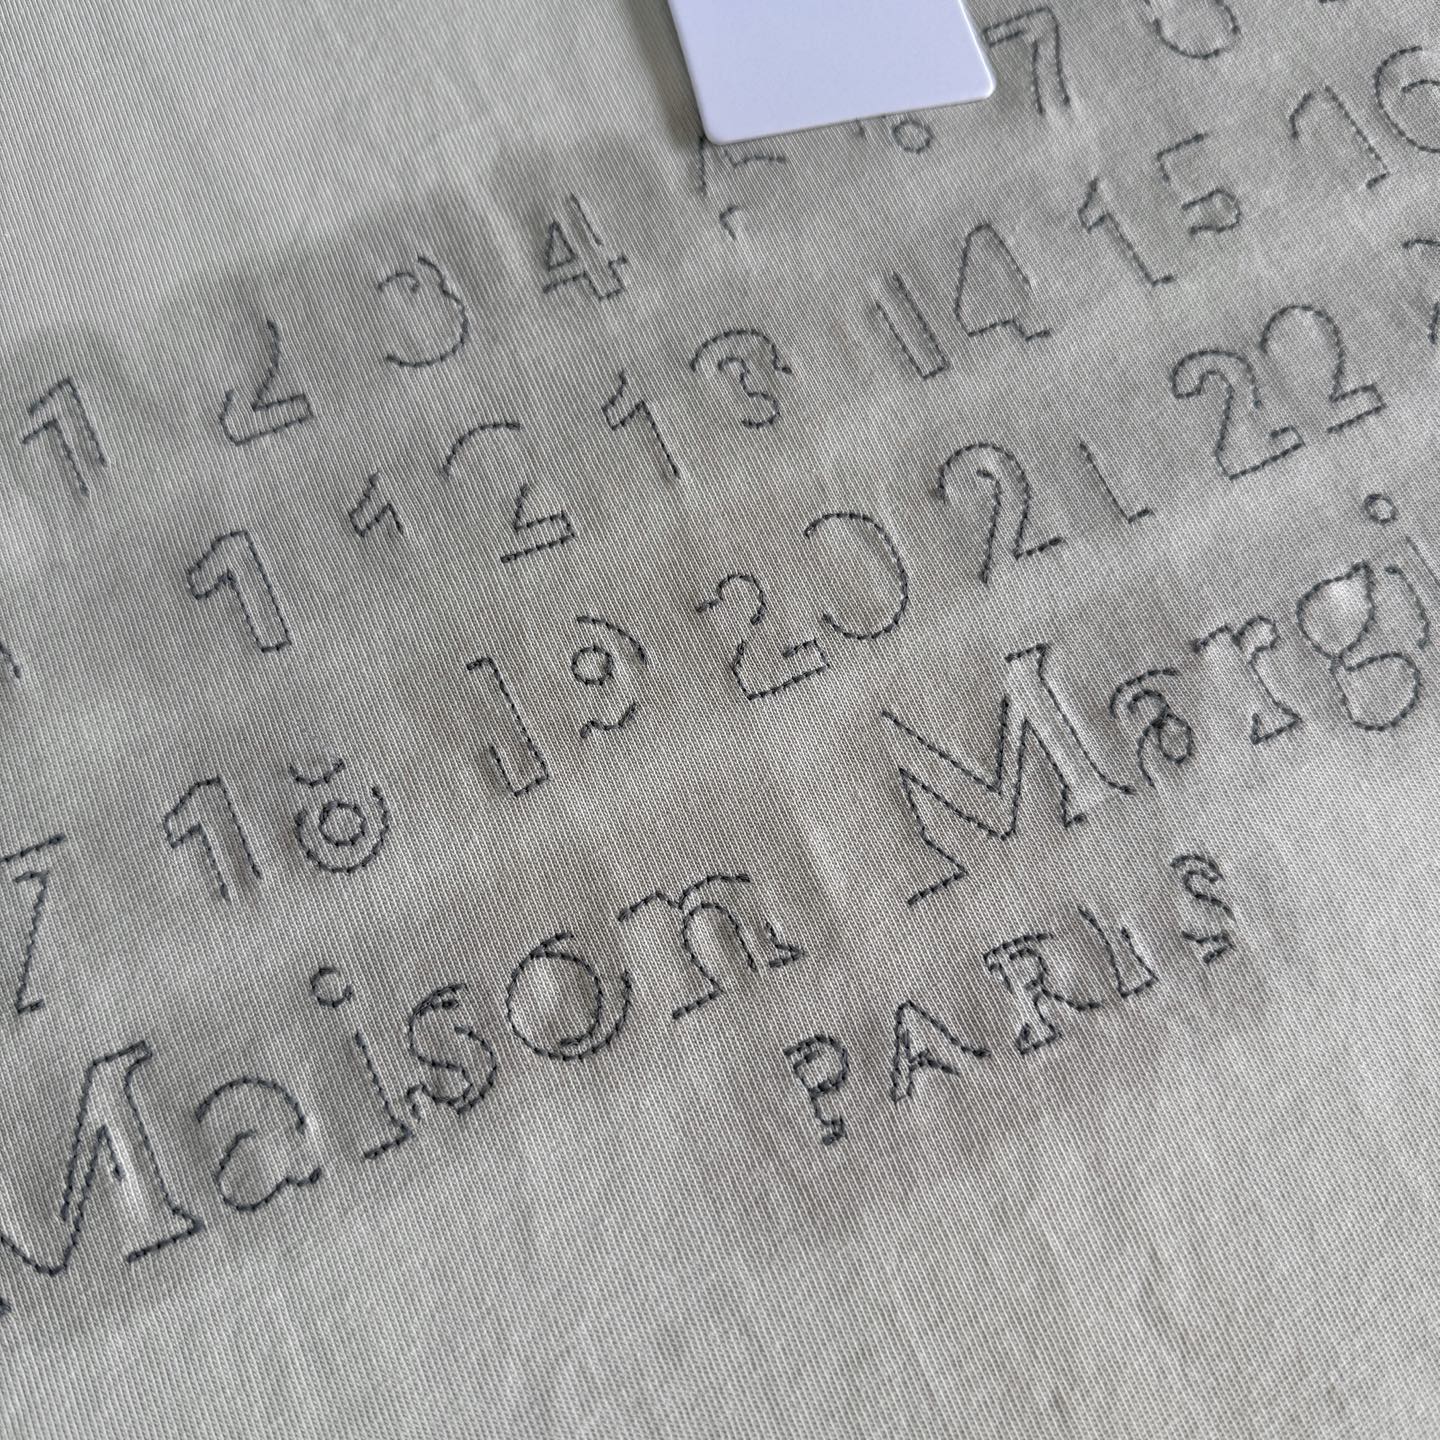 1 2 3 4 7
11 12 13 14 15 16
7 18 19 20 21 22
Maison Margi
PARIS